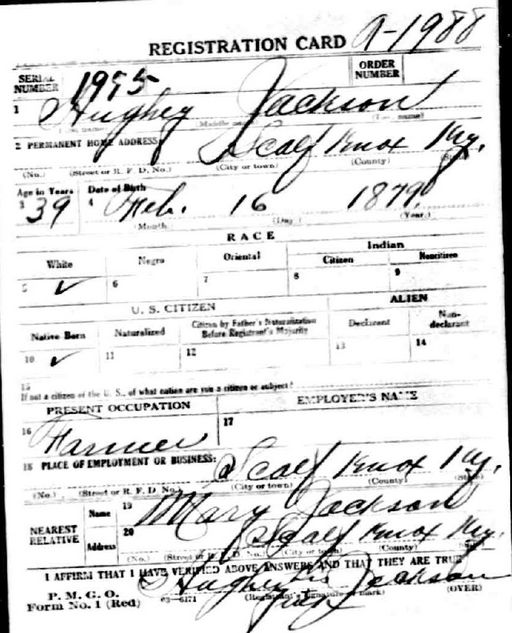 REGISTRATION CARD A-1988
SERIAL NUMBER 1975 ORDER NUMBER
1 Hughey Jackson
(First name) (Middle name) (Last name)
2 PERMANENT HOME ADDRESS: Scalf Knox Ky.
(No.) (Street or R. F. D. No.) (City or town) (County) (State)
Age in Years Date of Birth
3 39 4 Feb. 16 1879
(Month) (Day.) (Year.)
RACE
White Negro Oriental Indian
Citizen Noncitizen
5 ✓ 6 7 8 9
U. S. CITIZEN ALIEN
Native Born Naturalized Citizen by Father's Naturalization Before Registrant's Majority Declarant Non-declarant
10 ✓ 11 12 13 14
15
If not a citizen of the U. S., of what nation are you a citizen or subject?
PRESENT OCCUPATION EMPLOYER'S NAME
16 Farmer 17
18 PLACE OF EMPLOYMENT OR BUSINESS: Scalf Knox Ky.
(No.) (Street or R. F. D. No.) (City or town) (County) (State)
NEAREST RELATIVE Name 19 Mary Jackson
Address 20 Scalf Knox Ky.
(No.) (Street or R. F. D. No.) (City or town) (County) (State)
I AFFIRM THAT I HAVE VERIFIED ABOVE ANSWERS AND THAT THEY ARE TRUE
P. M. G. O.
Form No. 1 (Red) 03—6171 Hughey his Jackson
mark (Registrant's signature or mark) (OVER)